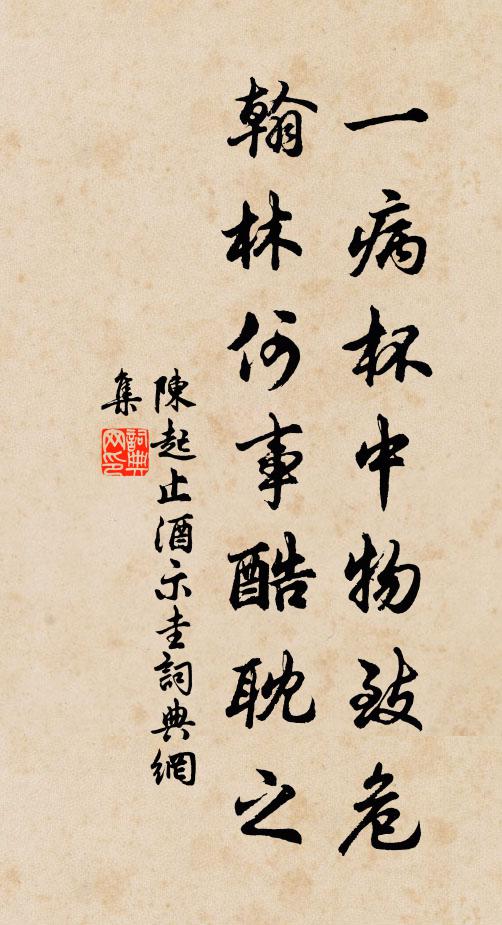 一病杯中物致危
翰林何事酷耽之
陳起止酒示圭詞典網
集
詞典網印